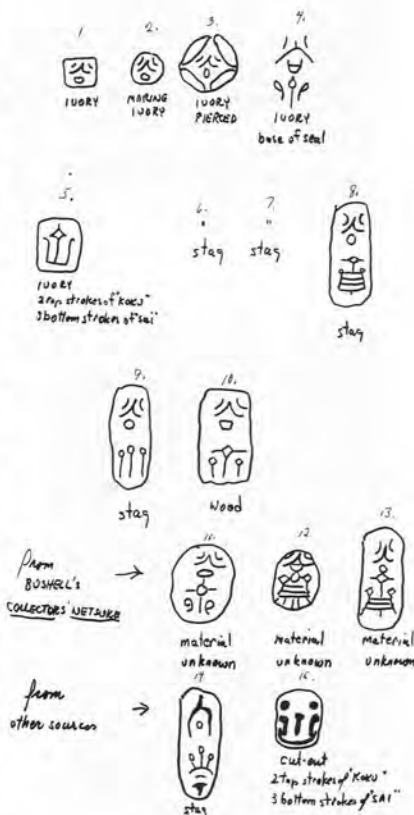 1.
IVORY
2.
MARINE
IVORY
3.
IVORY
PIERCED
4.
IVORY
base of seal
5.
IVORY
2 top strokes of "KOKU"
3 bottom strokes of "sai"
6.
stag
7.
stag
8.
stag
9.
stag
10.
Wood
From
BUSHELL'S
COLLECTORS' NETSUKE
11.
material
unknown
12.
Material
unknown
13.
Material
unknown
from
other sources
14.
stag
15.
cut-out
2 top strokes of "KOKU"
3 bottom strokes of "SAI"